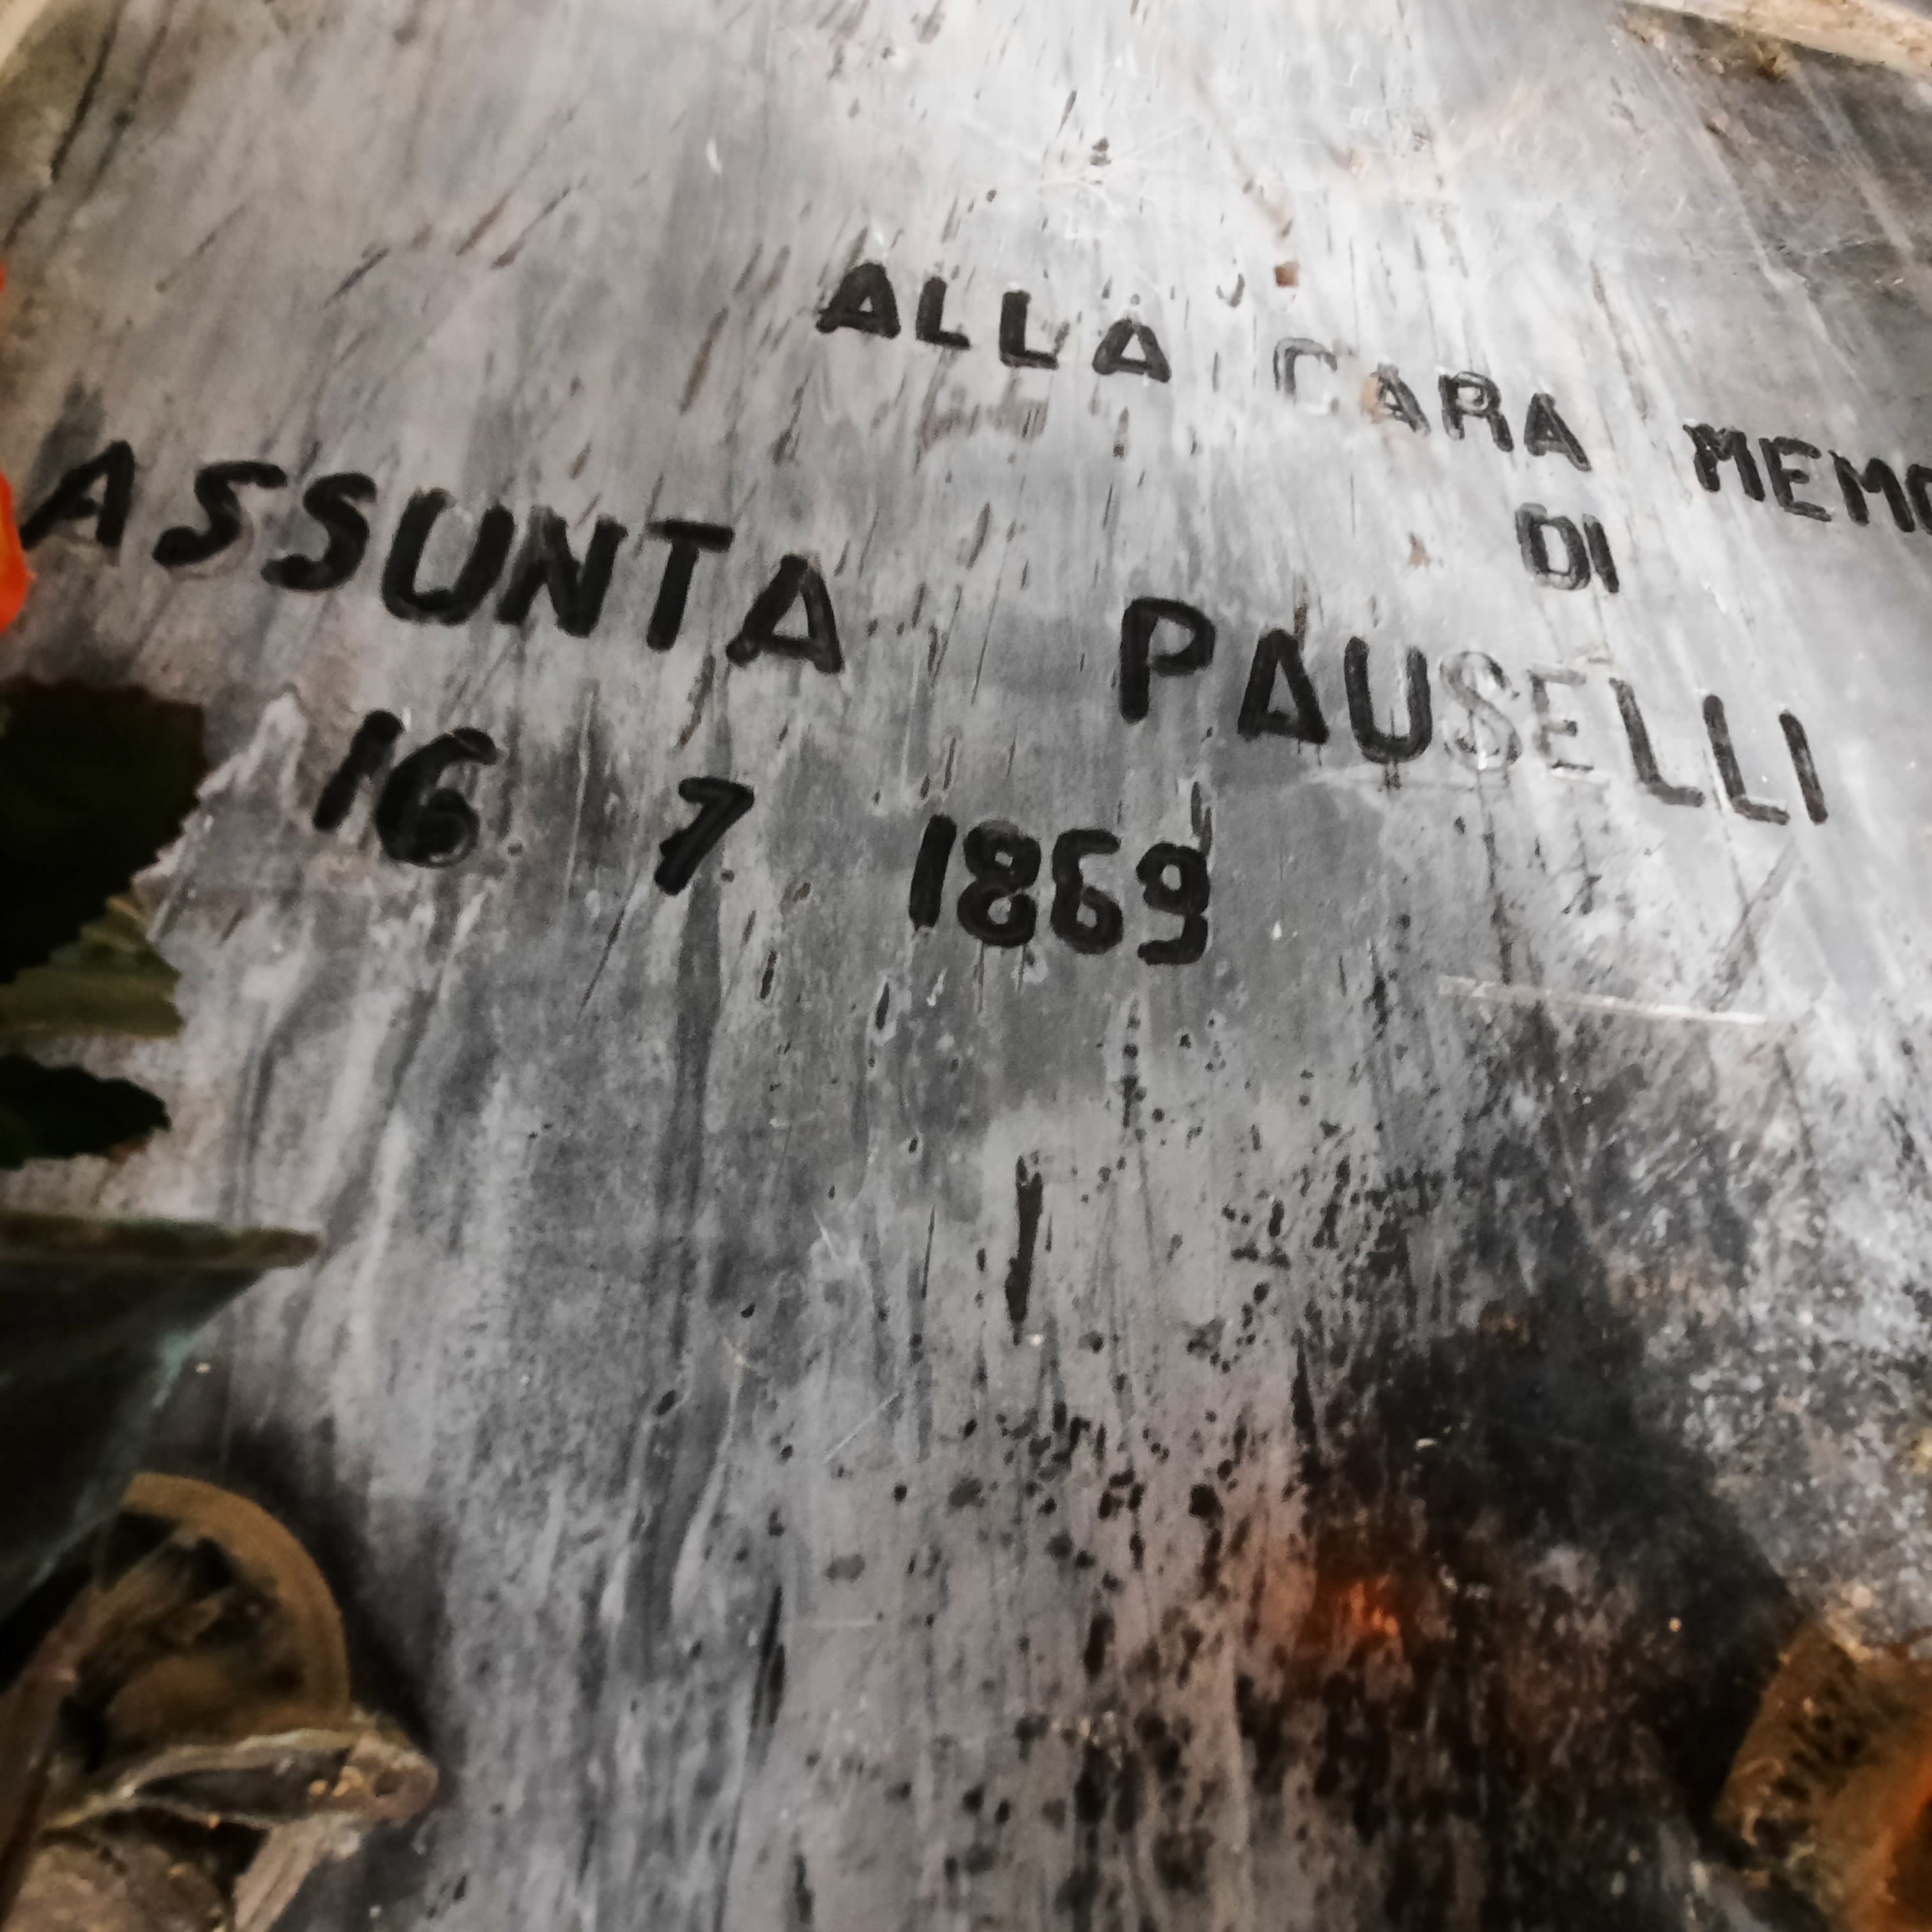 ALLA CARA MEMO
DI
ASSUNTA PAUSELLI
16 7 1869